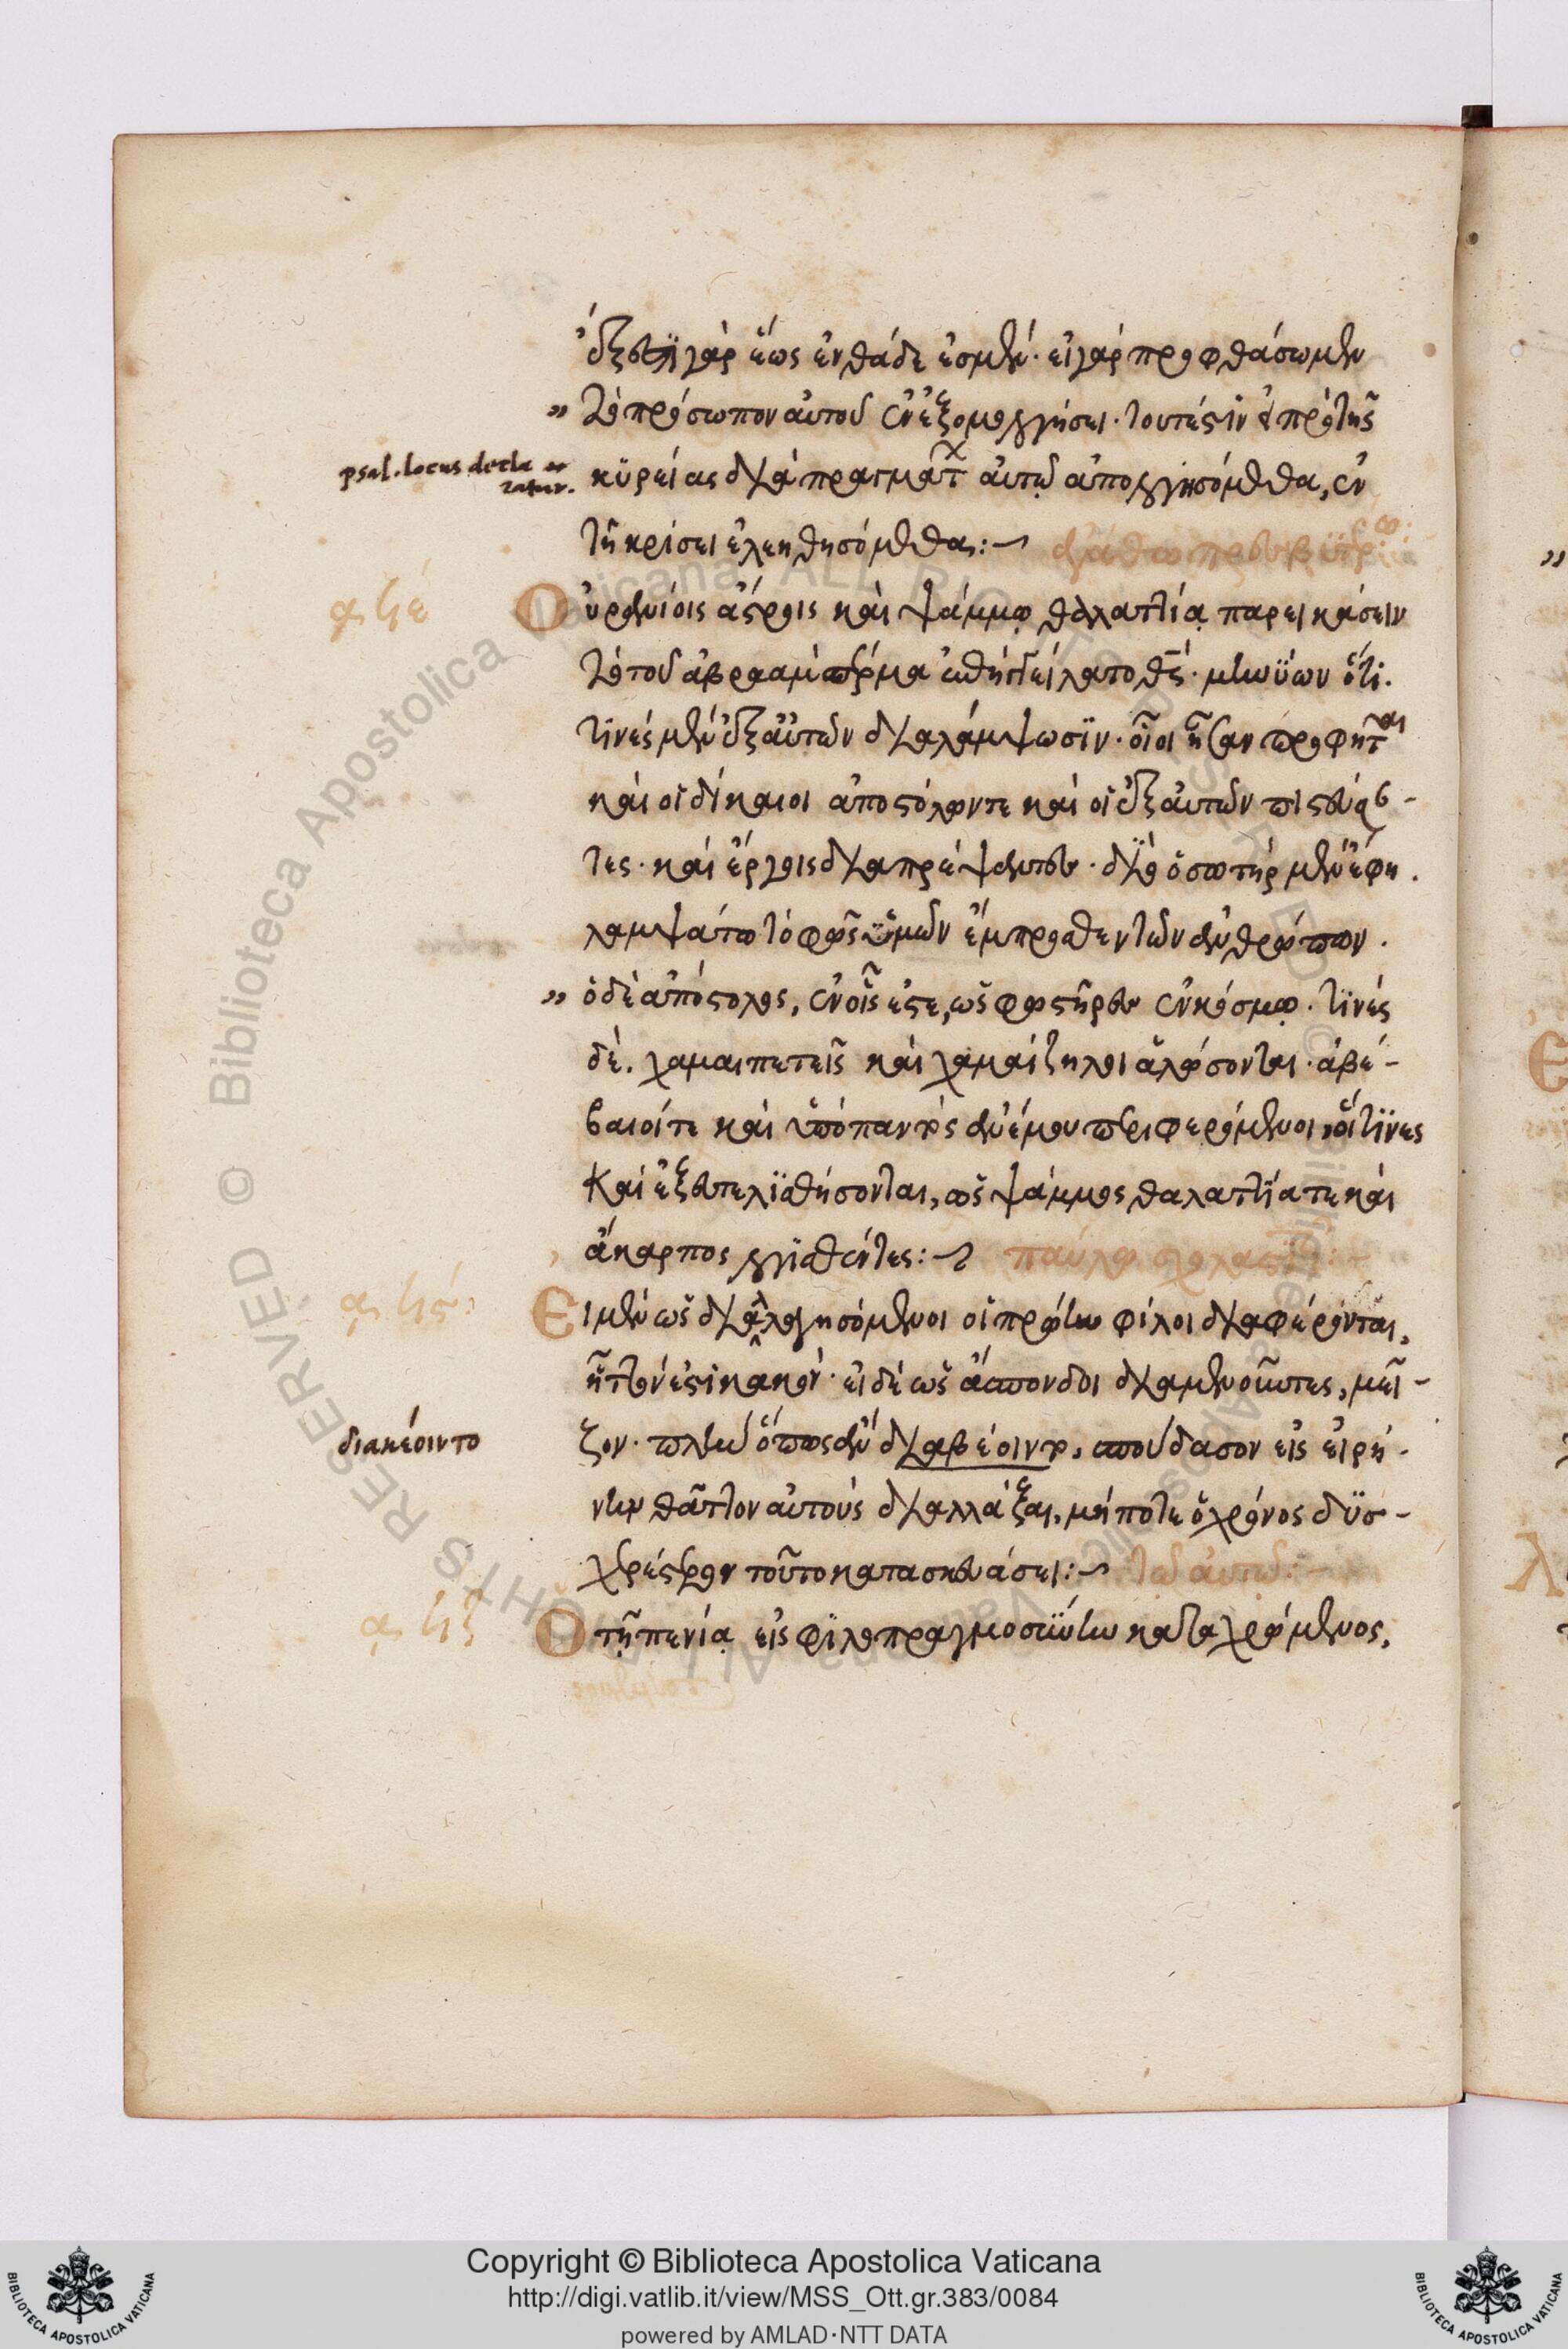 ἔξεστι γὰρ ἕως ἐνθάδε ἐσμέν· εἰ γὰρ προφθάσωμεν
„ τὸ πρόσωπον αὐτοῦ ἐν ἐξομολογήσει· τουτέστιν ἐὰν πρὸ τῆς
psal. locus decla
ratur.
κυρείας διὰ πραγμάτ αὐτῷ ἀπολογησόμεθα, ἐν
τῇ κρίσει ἐλεηθησόμεθα:
πρεσβυτέρω
Οὐρανίοις ἄστροις καὶ ψάμμῳ θαλαττίᾳ παρεικάσειν
τὸ τοῦ ἀβραὰμ σπέρμα ἐπηγγείλατο θς· μηνύων ὅτι·
τινὲς μὲν ἐξ αὐτῶν διαλάμψωσιν· οἷοι ἦσαν προφῆται
καὶ οἱ δίκαιοι ἀποστόλων τε καὶ οἱ ἐξ αὐτῶν πιστεύσαν-
τες· καὶ ἔργοις διαπρέψαντες· διὸ ὁ σωτὴρ μὲν ἔφη·
λαμψάτω τὸ φῶς ὑμῶν ἔμπροσθεν τῶν ἀνθρώπων·
„ ὁ δὲ ἀπόστολος, ἐν οἷς ἐστε, ὡς φωστῆρες ἐν κόσμῳ· τινὲς
δὲ· χαμαιπετεῖς καὶ χαμαίζηλοι ἁλώσονται· ἀβέ-
βαιοί τε καὶ ὑπὸ παντὸς ἀνέμου περιφερόμενοι, οἵτινες
καὶ ἐξευτελισθήσονται, ὡς ψάμμος θαλαττία τε καὶ
ἄκαρπος λογισθέντες: παύλω σχολαστικῷ:
Εἰ μὲν ὡς διαλλαγησόμενοι οἱ πρώην φίλοι διαφέρονται,
ἧττόν ἐστι κακόν· εἰ δὲ ὡς ἄσπονδοι διαμενοῦντες, μεῖ-
διακέοιντο
ζον· πλὴν ὅπως ἂν διαβέοιντο, σπούδασον εἰς εἰρή-
νην θᾶττον αὐτοὺς διαλλάξαι, μήποτε ὁ χρόνος δυσ-
χρέστερον τοῦτο κατασκευάσει: τῶ αὐτῶ:
Ὁ τῇ πενίᾳ εἰς φιλοπραγμοσύνην καταχρώμενος,
Copyright © Biblioteca Apostolica Vaticana
http://digi.vatlib.it/view/MSS_Ott.gr.383/0084
powered by AMLAD·NTT DATA